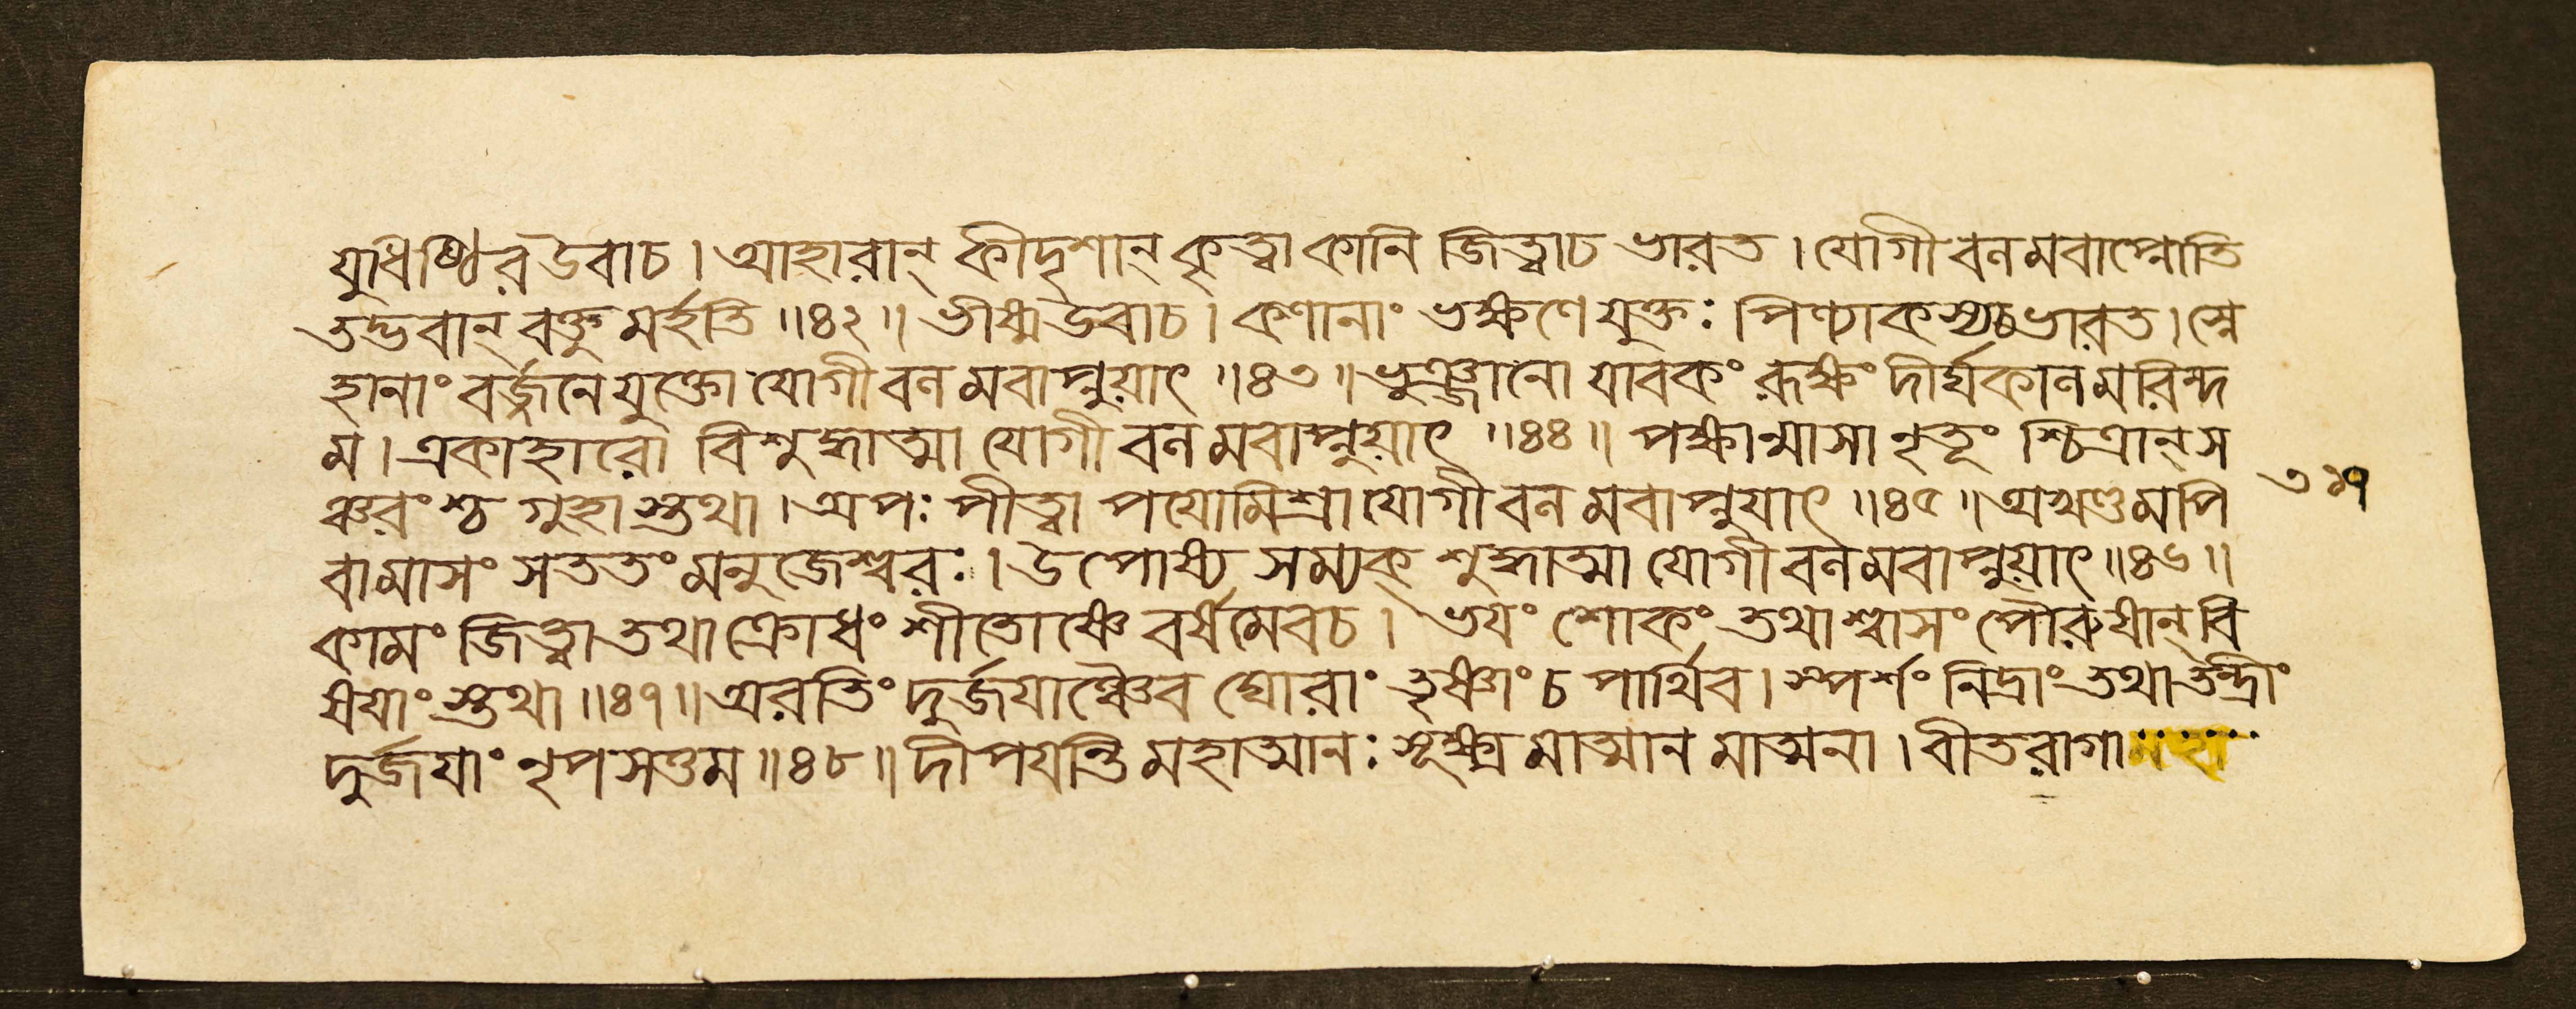 যুধিষ্ঠিরউবাচ। আহারান্ কীদৃশান্ কৃত্বাকানি জিত্বাচ ভারত। যোগীবনমবাপ্নোতি
তদ্ভবান্ বক্তুমর্হতি॥৪২॥ ভীষ্মউবাচ। কণানাং ভক্ষণেযুক্তঃ পিণ্যাকস্যচভারত। স্নে
হানাং বর্জ্জনেযুক্তো যোগীবনমবাপ্নুয়াৎ॥৪৩॥ ভুঞ্জানো যাবকং রূক্ষং দীর্ঘকানমরিন্দ
ম। একাহারো বিশুদ্ধাত্মা যোগীবনমবাপ্নুয়াৎ॥৪৪॥ পক্ষান্মাসানৃতূং শ্চিত্রান্স
ঞ্চরংশ্চ গুহাস্তথা। অপঃ পীত্বা পযোমিশ্রা যোগীবনমবাপ্নুযাৎ॥৪৫॥ অখণ্ডমপি
বামাসং সততং মনুজেশ্বরঃ। উপোষ্য সম্যক্ শুদ্ধাত্মা যোগীবনমবাপ্নুয়াৎ॥৪৬॥
কামং জিত্বা তথাক্রোধং শীতোষ্ণে বর্ষমেবচ। ভযং শোকং তথাশ্বাসং পৌরুষান্ বি
ষযাংস্তথা॥৪৭॥ অরতিং দুর্জযাঞ্চৈব ঘোরাং তৃষ্ণাং চ পার্থিব। স্পর্শং নিদ্রাং তথাতন্দ্রীং
দুর্জযাং নৃপসত্তম॥৪৮॥ দীপযন্তি মহাত্মানঃ সূক্ষ্মমাত্মানমাত্মনা। বীতরাগামহা